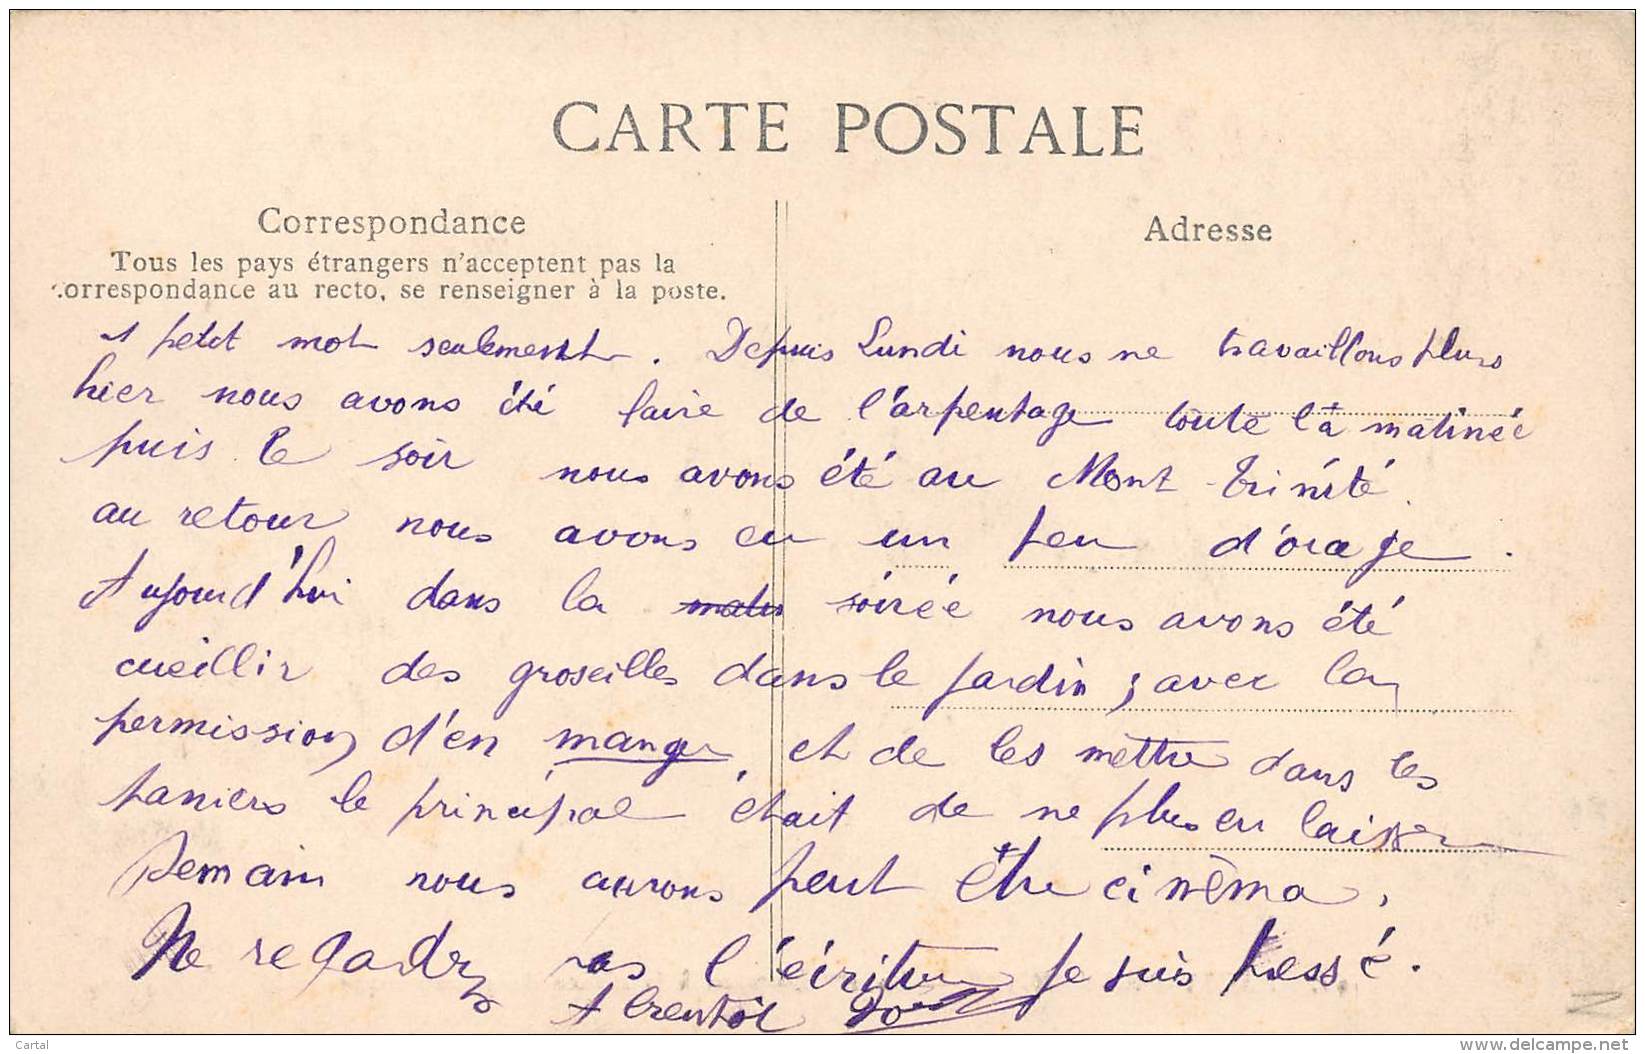 CARTE POSTALE
Correspondance
Adresse
Tous les pays étrangers n'acceptent pas la
correspondance au recto, se renseigner à la poste.
1 petit mot seulement. Depuis Lundi nous ne travaillons plus
hier nous avons été faire de l'arpentage toute la matinée
puis le soir nous avons été au Mont Trinité.
au retour nous avons eu un peu d'orage.
Aujourd'hui dans la matin soirée nous avons été
cueillir des groseilles dans le jardin, avec la
permission d'en manger, et de les mettre dans les
paniers le principal était de ne plus en laisser
Demain nous aurons peut être cinéma.
Ne regardez pas l'écriture je suis pressé.
A bientôt
Cartal
www.delcampe.net